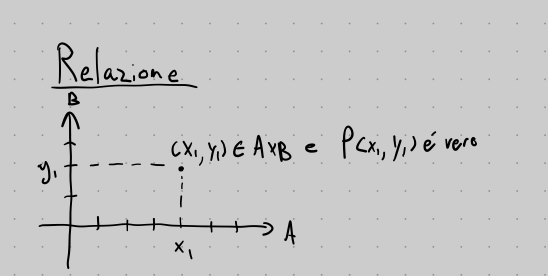 Relazione
B
(x₁, y₁) ∈ A×B e P(x₁, y₁) é vero
y₁
A
x₁